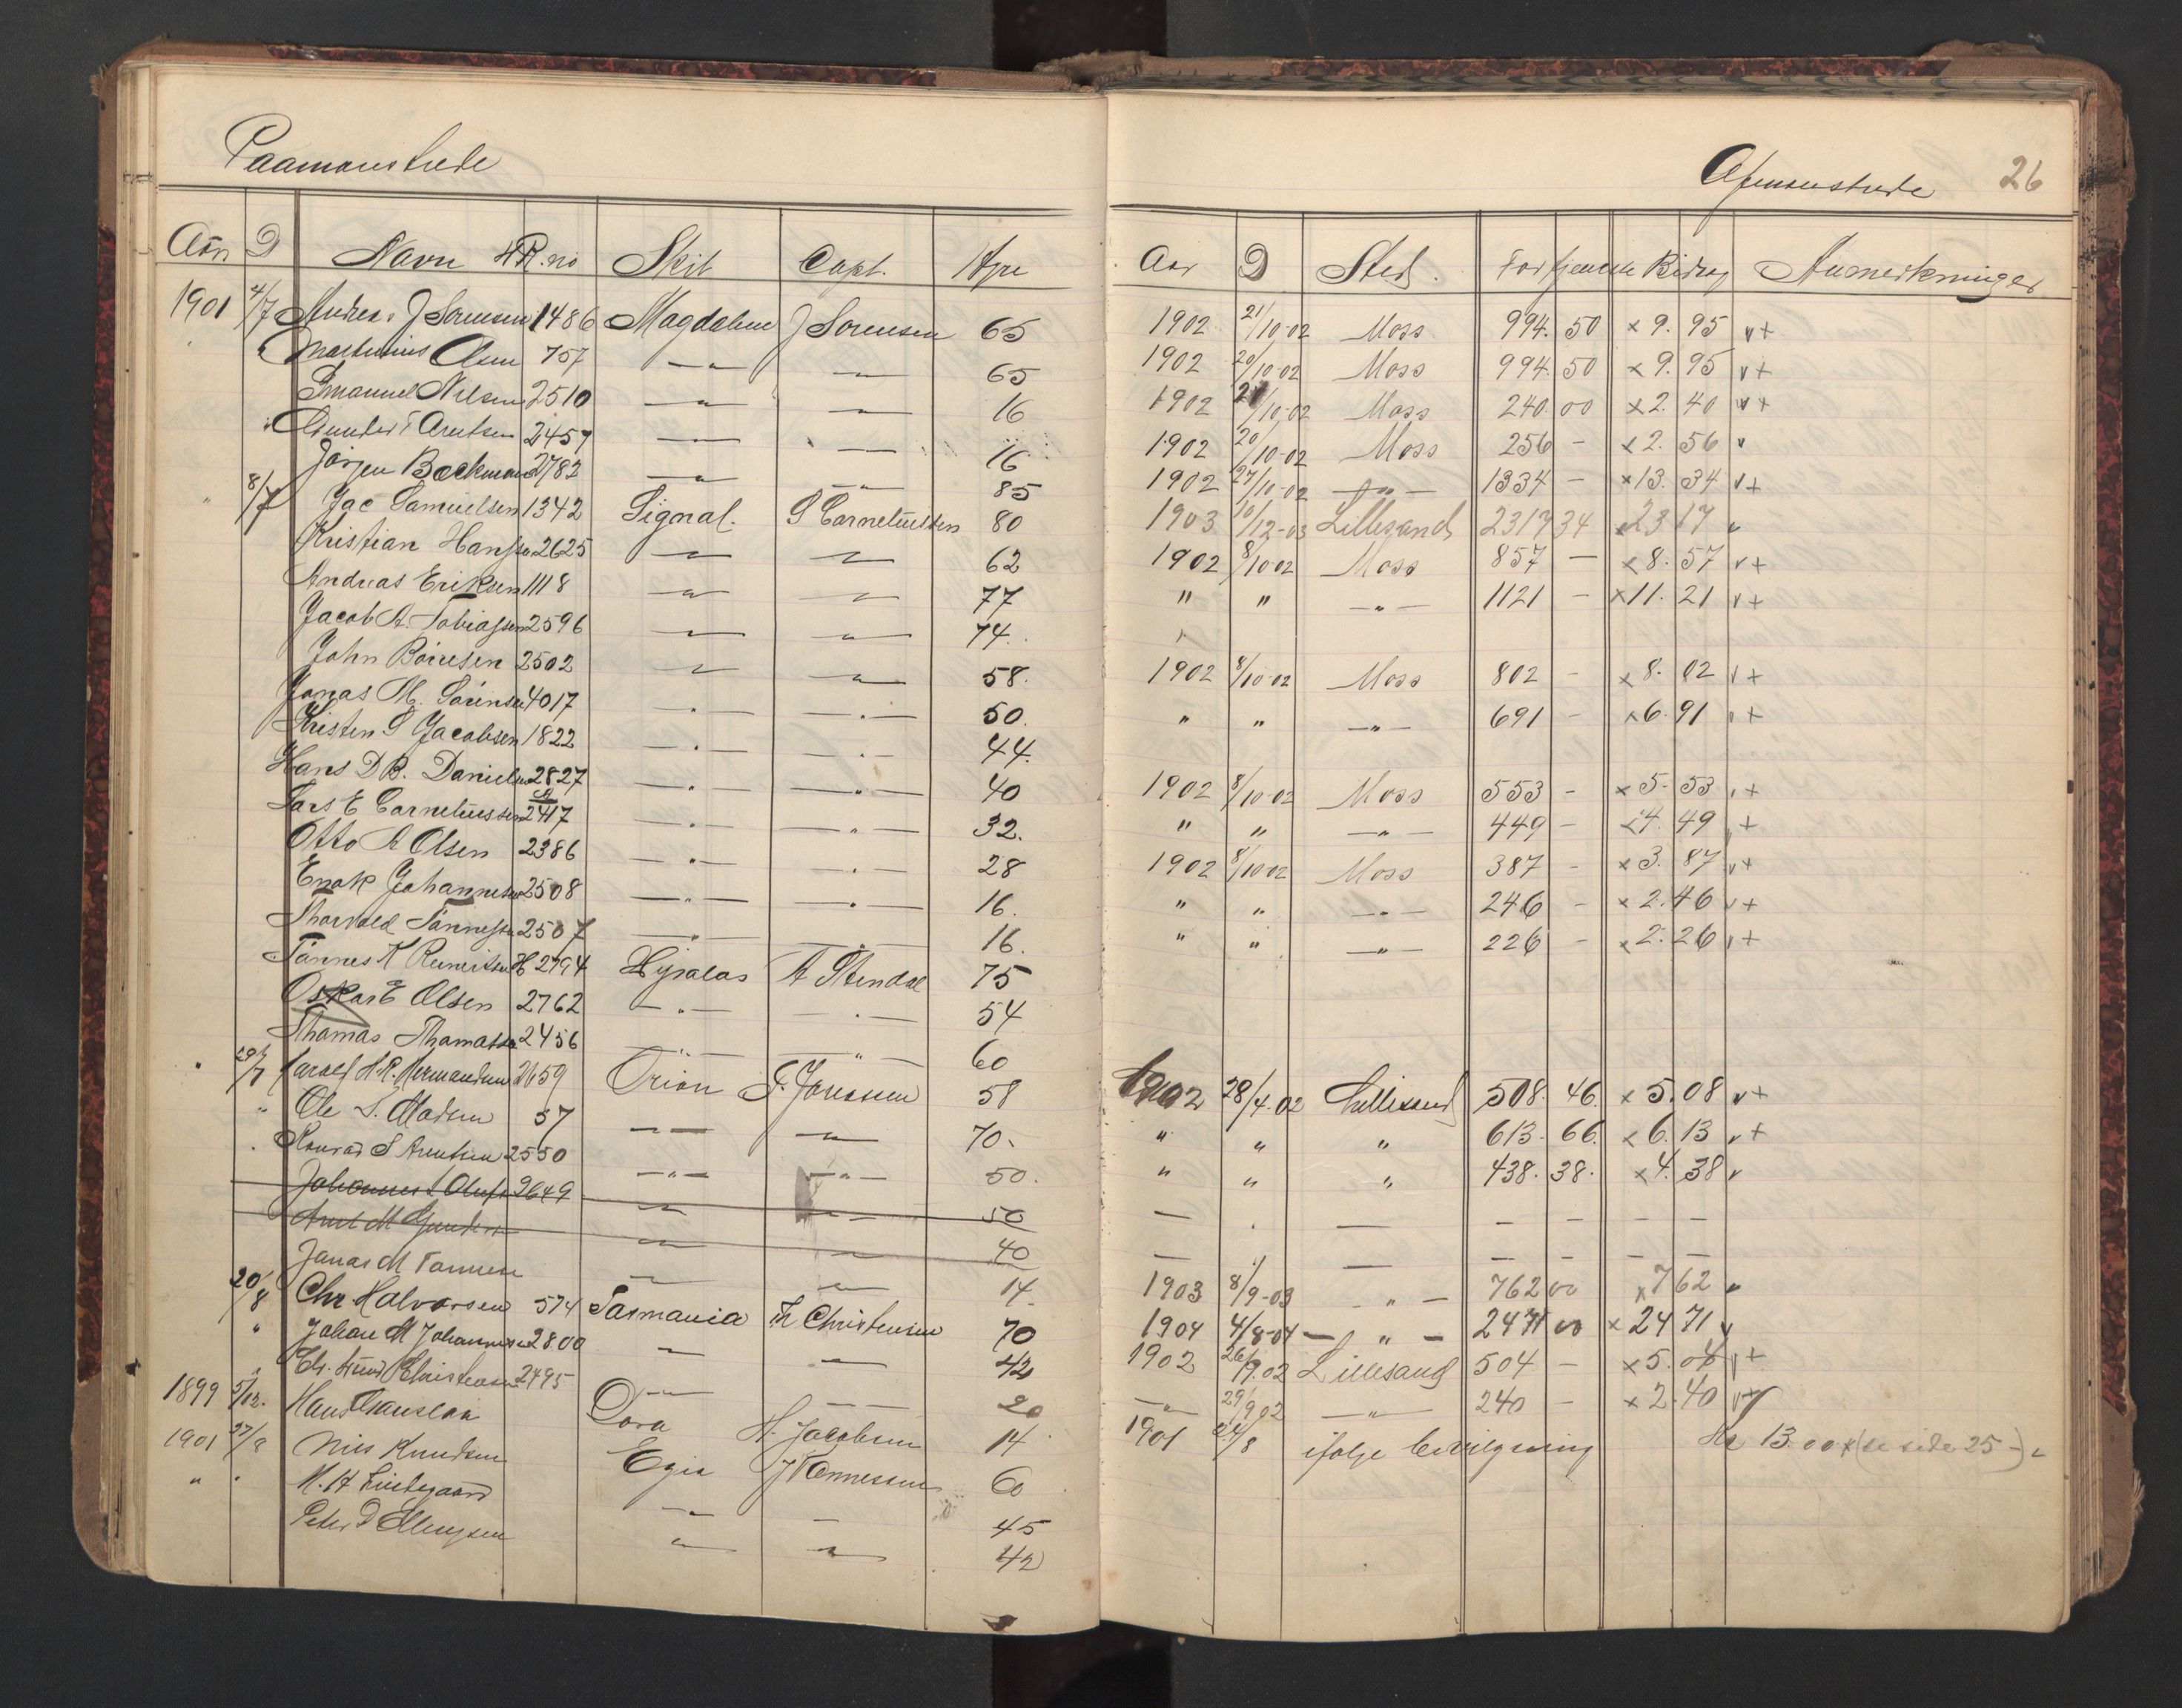 Paamønstrede
Afmønstrede 26
Aar D Navn H.R.no Skib Capt. Hyre
Aar D Sted. Fortjeneste Bidrag Anmerkninger
1901 4/7 Andreas J Sørensen 1486 Magdalene J Sørensen 65 1902 21/10-02 Moss 994. 50 x 9. 95 v+
Mathinius Olsen 757 — " — — " — 65 1902 20/10-02 Moss 994. 50 x 9. 95 v+
Emanuel Nilsen 2510 — " — — " — 16 1902 /10-02 Moss 240. 00 x 2. 40 v+
Gunder T Arntsen 2457 — " — — " — 16 1902 20/10-02 Moss 256 - x 2. 56 v
Jørgen Beckmann 2782 — " — — " — 85 1902 27/10-02 — " — 1334 - x 13. 34 v+
" 8/7 Jac Samuelsen 1342 Signal. S Corneliussen 80 1903 10/12-03 Lillesand 2317 34 x 23 17 v
Kristian Hanssen 2625 — " — — " — 62 1902 8/10 02 Moss 857 — x 8. 57 v+
Andreas Eriksen 1118 — " — — " — 77 " " — " — 1121 - x 11. 21 v+
Jacob A. Tobiassen 2596 — " — — " — 74.
John Börresen 2502 — " — — " — 58. 1902 8/10-02 Moss 802 - x 8. 02 v+
Jonas M. Sörensen 4017 — " — — " — 50. " " — " — 691 - x 6. 91 v+
Kristen S Jacobsen 1822 — " — — " — 44.
Hans D B. Danielsen 2827 — " — — " — 40 1902 8/10-02 Moss 553 - x 5- 53 v+
Lars E Corneliussen 2417 — " — — " — 32. " " — " — 449 - x 4. 49 v+
Otto A Olsen 2386 — " — — " — 28 1902 8/10 02 Moss 387 - x 3. 87 v+
Enok Johannesen 2508 — " — — " — 16. " " — " — 246 - x 2. 46 v+
Thorvald Tönnessen 2507 — " — — " — 16. " " — " — 226 - x 2. 26 v+
Tönnes K Reinertsen H 2794 Hyralas A Stendal 75
Oskar E Olsen 2762 — " — — " — 54
Thomas Thomassen 2456 — " — — " — 60
" 29/7 Harald H.R. Hermansen 2659 Orion S. Jonassen 58 1902 28/4.02 Lillesand 508. 46. x 5. 08 v+
" Ole S. Madsen 37 — " — — " — 70. " " " 613. 66. x 6. 13 v+
" Konrad S Arentsen 2550 — " — — " — 50. " " " 438. 38. x 4. 38 v
Johannes L Olufs 2649 — " — — " — 50 — — — — — —
Arnt M Gunders — " — — " — 40 — — — — — —
Jonas M Tønnesen — " — — " — 14. 1903 8/9-03 — " — 762 00 x 7 62 v
20/8 Chr. Halvorsen 574 Tasmania Th Christensen 70 1904 4/8-04 — " — 2471 00 x 24 71 v
" Johan M Johannesen 2800 — " — — " — 42 1902 26/9.02 Lillesand 504 - x 5. 04 v+
" Christensen 2495 — " — — " — 20 — " — 29/9 02 — " — 240 - x 2. 40 v+
1899 5/12. Hans Dora H. Jacobsen 14 1901 24/8 ifølge bevilgning Kr 13.00 x (se side 25-) v
1901 27/8 Nils Knudsen Egia J Tønnessen 60
" " M. H Lindegaard — " — — 45
Peter D Ellingsen — " — — " — 42